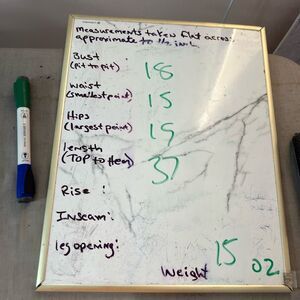 measurements taken flat across
approximate to 1/2 inch
Bust :
(Pit to pit) 18
waist
(smallest point) 15
Hips
(largest point) 19
length
(TOP to Hem) 37
Rise :
Inseam :
leg opening :
Weight 15 oz